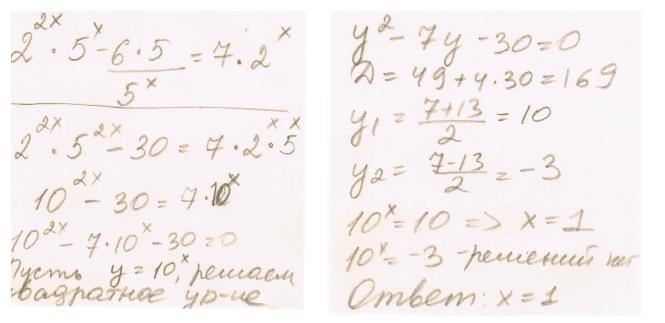 2^{2x} · 5^x - \frac{6·5}{5^x} = 7·2^x
2^{2x} · 5^{2x} - 30 = 7·2^x·5^x
10^{2x} - 30 = 7·10^x
10^{2x} - 7·10^x - 30 = 0
Пусть y = 10^x, решаем
квадратное ур-ие
y² - 7y - 30 = 0
D = 49 + 4·30 = 169
y₁ = \frac{7+13}{2} = 10
y₂ = \frac{7-13}{2} = -3
10^x = 10 => x = 1
10^x = -3 - решений нет
Ответ: x = 1